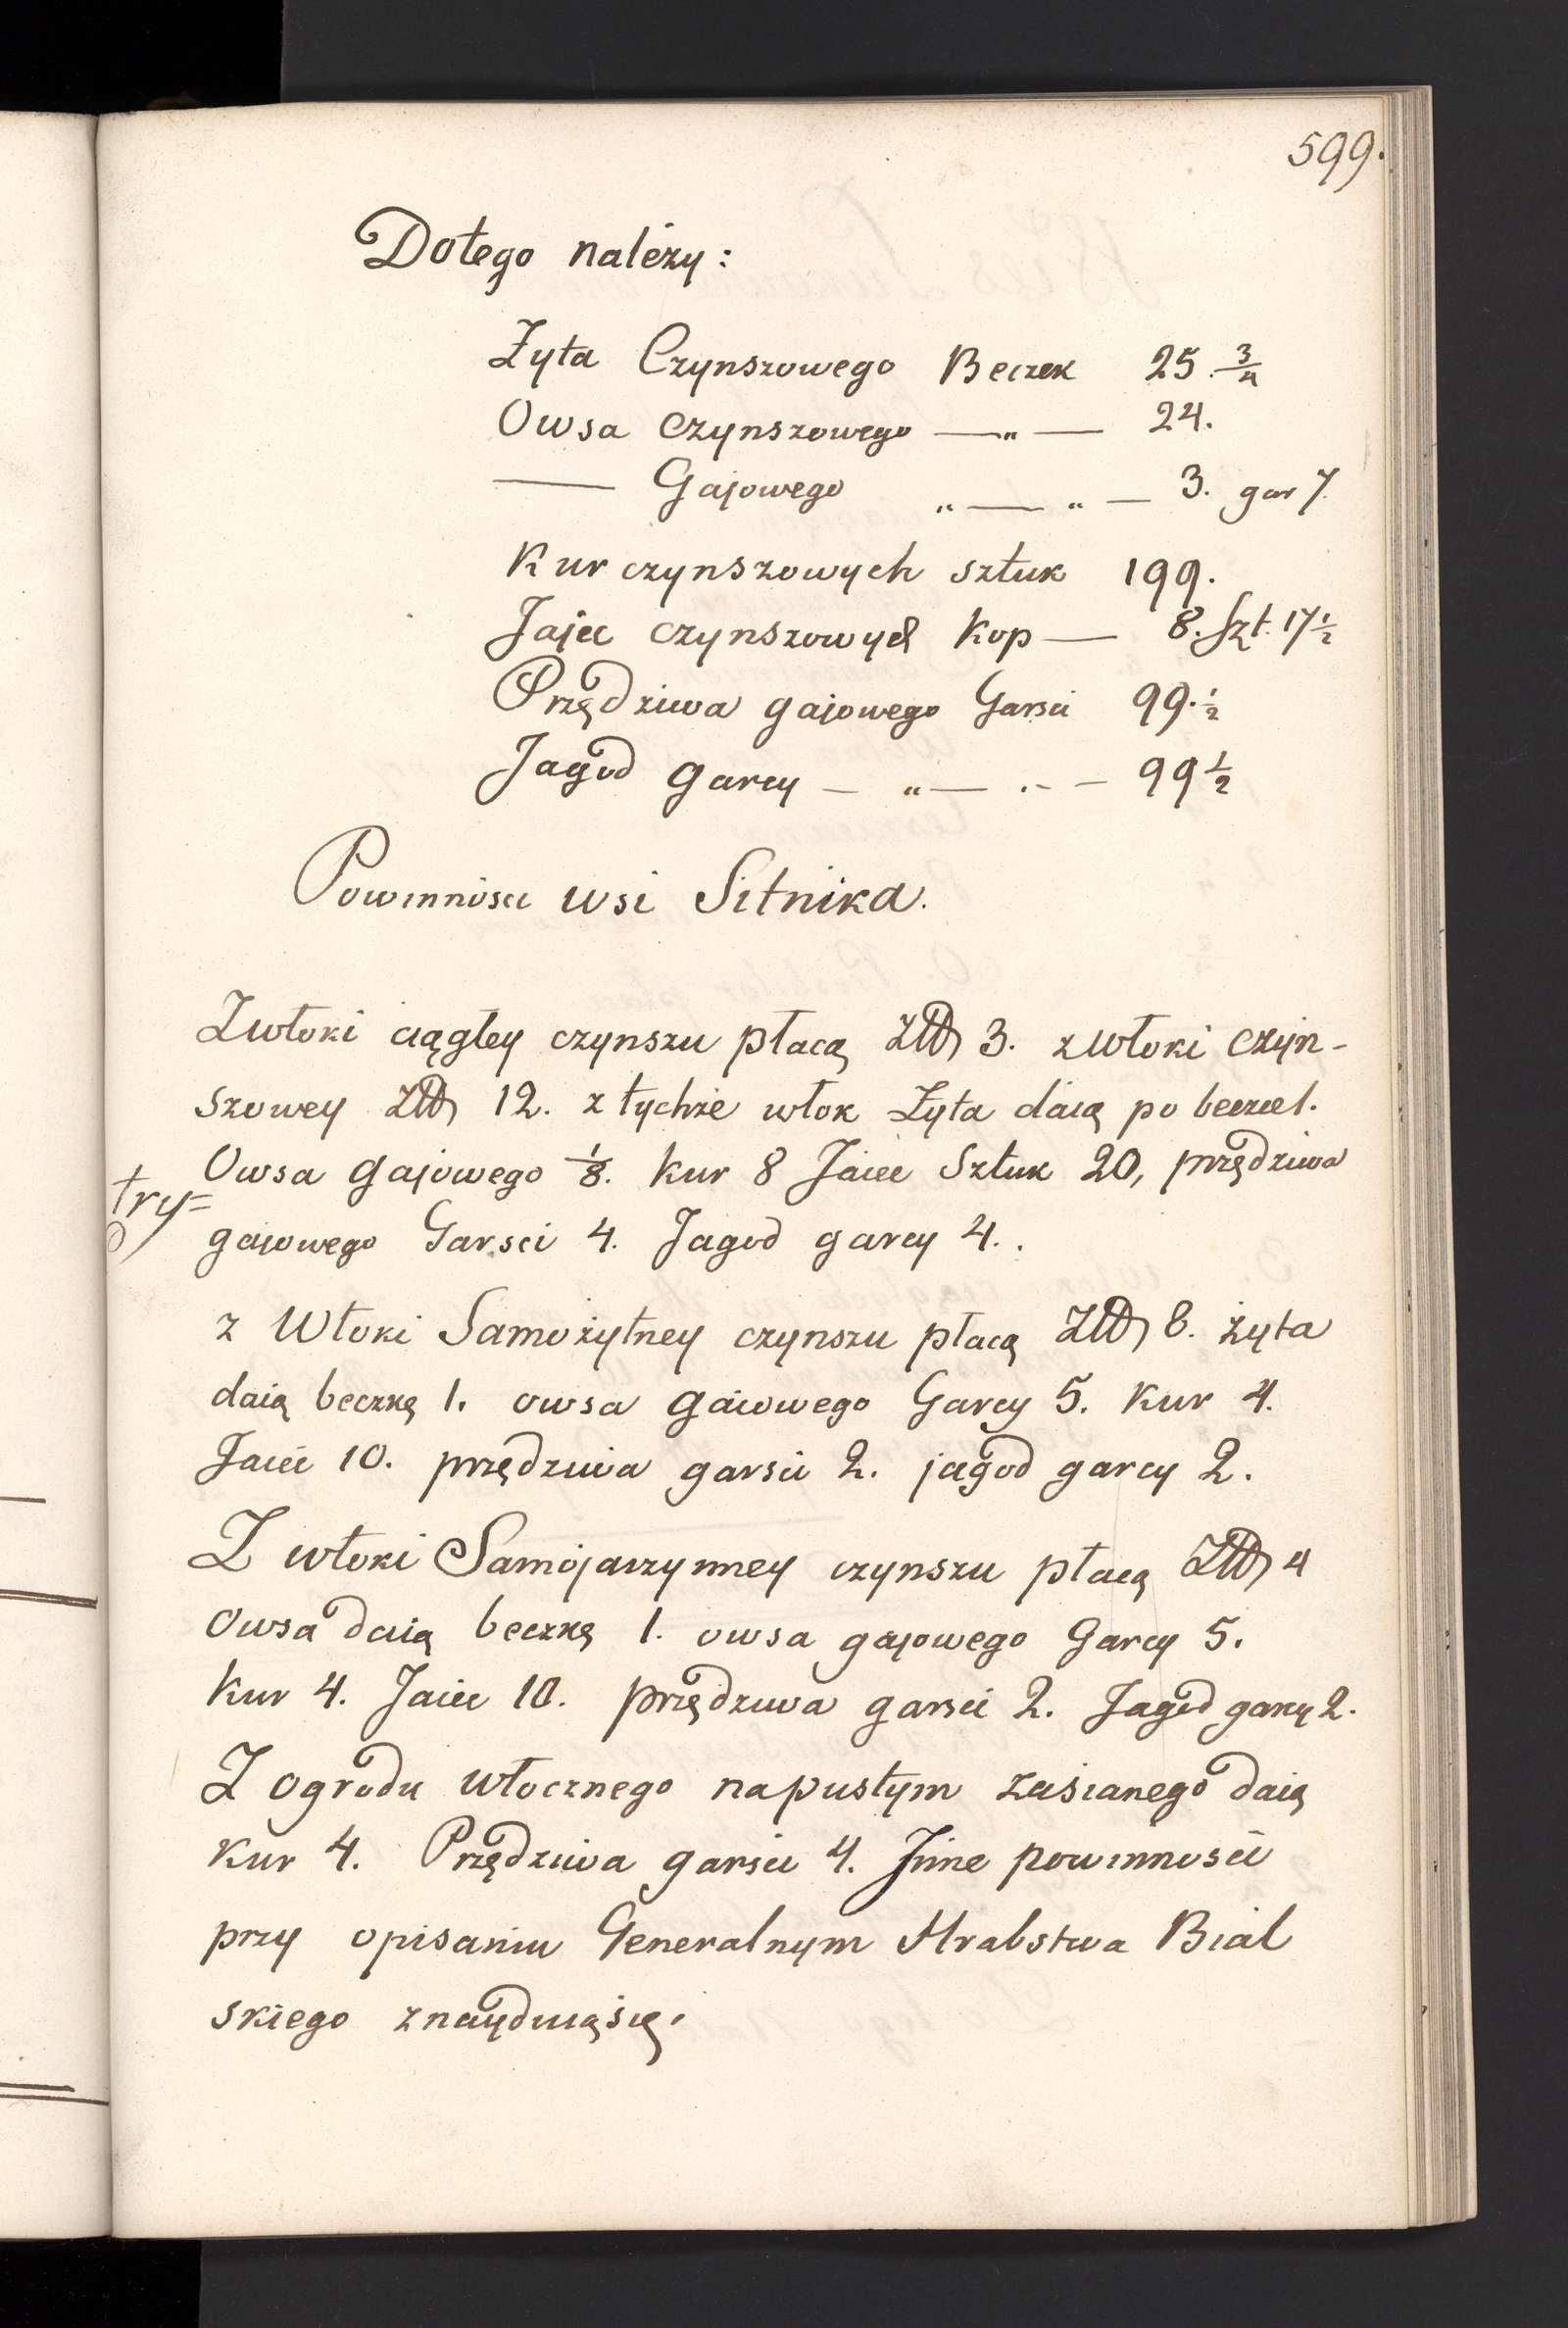 599.
Dotego należy:
Żyta Czynszowego Beczek 25. 3/4
Owsa czynszowego —„— 24.
— Gajowego „—„— 3. gar 7.
Kur czynszowych sztuk 199.
Jajec czynszowych Kop — 8. Szt. 17 1/2
Przędziwa gajowego Garsci 99. 1/2
Jagod garcy — „— .- — 99 1/2
Powinnosci wsi Sitnika.
Zwłoki ciągłey czynszu płacą Złł 3. zwłoki czyn-
szowey Złł 12. z tychże włok Żyta daią po beczce 1.
Owsa gajowego 1/8. kur 8 Jaiec Sztuk 20, przędziwa
try=
gajowego Garsci 4. Jagod garcy 4..
z Włoki Samożytney czynszu płacą Złł 8. żyta
daią beczkę 1. owsa gaiowego Garcy 5. Kur 4.
Jaiec 10. przędziwa garsci 2. jagod garcy 2.
Z włoki Samojarzynney czynszu płacą Złł 4
Owsa daią beczkę 1. owsa gajowego Garcy 5.
kur 4. Jaiec 10. przędziwa garsci 2. Jagod garcy 2.
Z ogrodu włocznego napustym zasianego daią
kur 4. Przędziwa garsci 4. Jnne powinnosci
przy opisaniu Generalnym Hrabstwa Bial
skiego znayduiąsię.